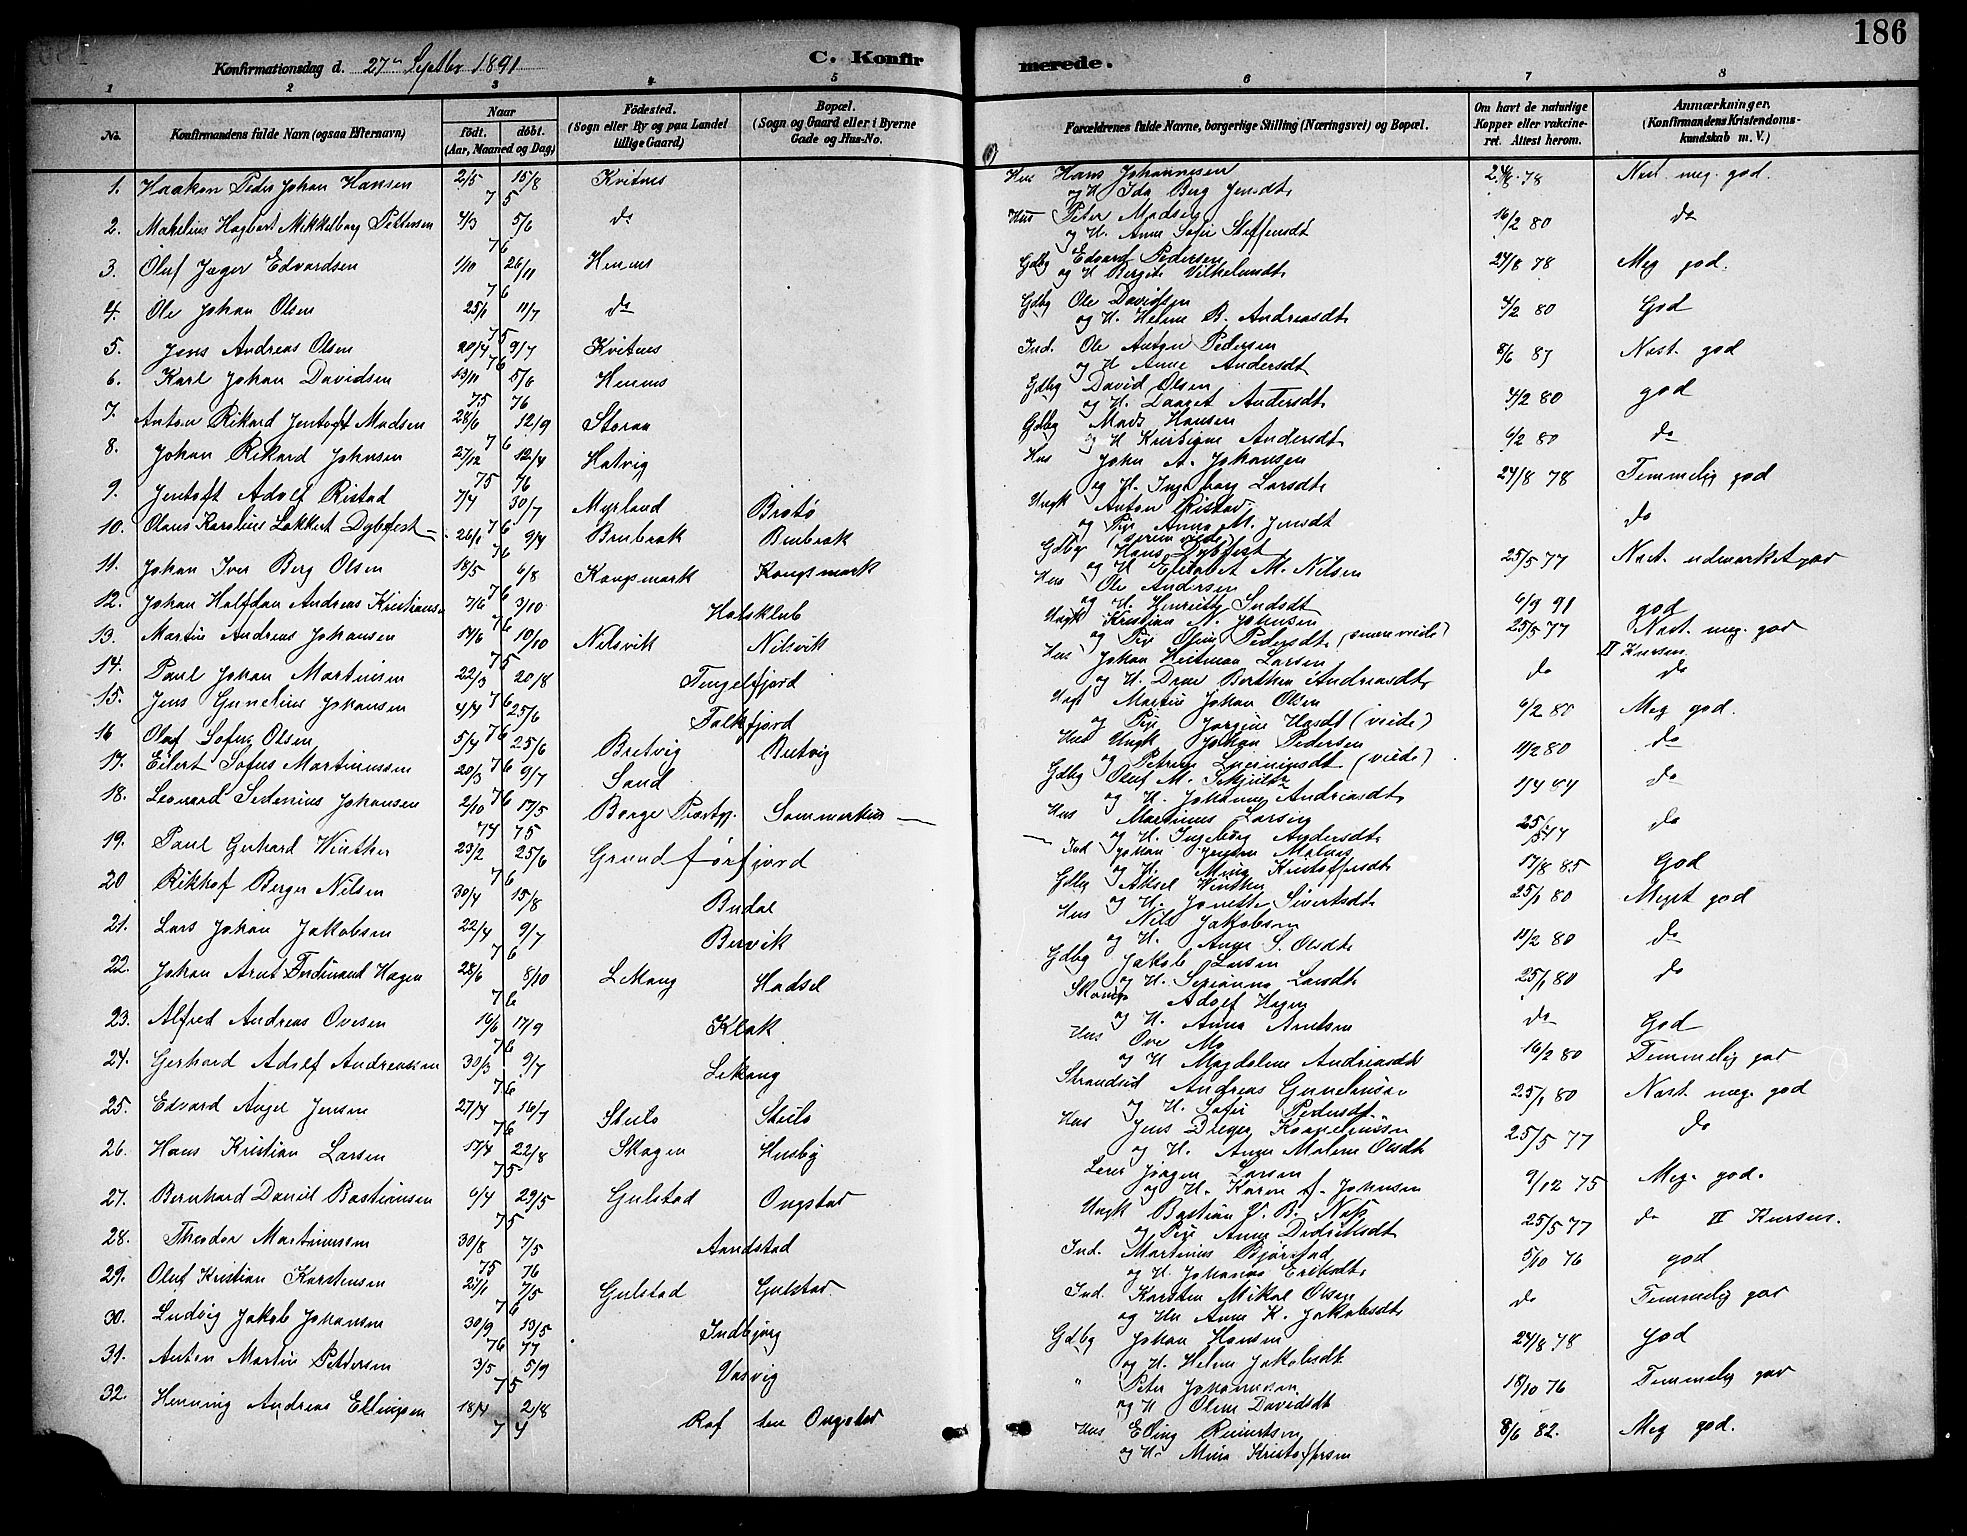 186
Konfirmationsdag d. 27de Septbr 1891
C. Konfirmerede.
1 2 3 4 5 6 7 8
No. Konfirmandens fulde Navn (ogsaa Efternavn) Naar født. døbt. (Aar, Maaned og Dag) Födested. (Sogn eller By og paa Landet tillige Gaard) Bopæl. (Sogn og Gaard eller i Byerne Gade og Hus-No. Forældrenes fulde Navne, borgerlige Stilling (Næringsvei) og Bopæl. Om havt de naturlige Kopper eller vakcineret. Attest herom. Anmærkninger. (Konfirmandens Kristendomskundskab m. V.)
1. Haakon Peder Johan Hansen 2/5 15/8 75 Kvitnes Hus Hans Johannesen og H. Ida Berg Jensdt. 24/8 78 Næst. meg. god.
2. Makelius Hagbart Mikkelborg Pettersen 4/3 5/6 76 do Hus Peter Madsen og H. Anne Sofie Steffensdt 16/2 80 do
3. Oluf Jæger Edvardsen 1/10 26/11 76 Hennes Gdbg Edvard Pedersen og H Bergite Vilhelmsdt. 24/8 78 Meg god.
4. Ole Johan Olsen 25/1 11/7 75 do Gdbg Ole Davidsen og H. Helene B. Andreasdt. 4/2 80 God
5. Jens Andreas Olsen 20/4 9/7 76 Kvitnes Ind. Ole Anton Pedersen og H Anne Andersdt 8/6 83 Næst. god
6. Karl Johan Davidsen 13/11 75 5/6 76 Hennes Gdbg David Olsen og H. Daaret Andersdt. 4/2 80 god
7. Anton Rikard Jentoft Madsen 28/6 12/9 76 Storaa Gdbg Mads Hansen og H Kristine Andersdt. 6/2 80 do
8. Johan Rikard Johnsen 27/12 75 12/4 76 Hatvig Hus John A. Johansen og H. Ingeborg Larsdt. 24/8 78 Temmelig god
9. Jentoft Adolf Ristad 7/4 30/7 76 Myrland Brotø Ungk Anton Ristad og Pige Anna M. Jensdt do
10. Olaus Karolius Lokkert Dybfest 26/1 9/4 76 Brubrak Brubrak Gdbg Hans Dybfest og H Elisabet M. Nilsen 25/5 77 Næst. udmærket god
11. Johan Iver Berg Olsen 18/5 6/8 76 Kongsmark Kongsmark Hus Ole Andersen og H. Henriette Indsdt 6/9 91 god
12. Johan Halfdan Andreas Kristiansen 7/6 3/10 76 Holsklub Ungk Kristian N. Johnsen og Pige Oline Pedersdt. 25/5 77 Næst. meg. god
13. Martin Andreas Johansen 14/6 10/10 75 Nilsvik Nilsvik Hus Johan Heitman Larsen og H. Berthea Andreasdt. do II Kursen do
14. Paul Johan Martinsen 22/3 20/8 76 Tengelfjord Ungk Martin Johan Olsen og Pige Jorgine Hansdt (viede) 6/2 80 Meg god.
15. Jens Gunelius Johansen 4/4 25/6 76 Falkfjord Hus Ungk Johan Pedersen (viede) 11/2 80 do
16 Oluf Sofus Olsen 5/4 25/6 76 Bretvig Bretvig Gdbg Oluf M. Schjultz og H. Johanne Andreasdt. 1/4 84 do
17. Eilert Sofus Martinussen 20/3 9/7 76 Sand Hus Martinus Larsen og H. Ingeborg Andersdt. 25/5 77 do
18. Leonard Sedenius Johansen 2/10 74 17/5 75 Borge Præstg. Sommerhus Ind Johan og H. Mina Kristoffersdt. 17/8 85 God
19. Paul Gerhard Winther 23/2 25/6 76 Grundførfjord Gdbg Aksel Winther og H. Jonette Sivertsdt. 25/1 80 Meget god
20 Rikhof Berger Nilsen 30/4 15/8 Budal Hus Nils Jakobsen og H. Anne S. Olsdt. 11/2 80 do
21. Lars Johan Jakobsen 22/4 9/7 76 Bervik Gdbg Jakob Larsen og H. Larsdt. 25/1 80 do
22. Johan Arnt Ferdinand Hagen 28/6 8/10 76 Lekang Hadsel Adolf Hagen og H. Anna Arntsen do God
23. Alfred Andreas Ovesen 16/6 17/9 76 Klak Hus Ove Mo og H Magdalene Andreasdt 16/2 80 Temmelig god
24. Gerhard Adolf Andreassen 30/3 9/7 76 Lekang Strandsid Andreas Guneliussen og H. Sofie Pedersdt. 25/1 80 Næst meg. god
25. Edvard Angel Jensen 27/4 16/7 76 Steilo Steilo Hus Jens Dreyer Korneliussen og H. Anne Malene Olsdt 25/5 77 do
26. Hans Kristian Larsen 17/4 22/8 75 Skagen Husby Jørgen Larsen og H. Karen J. Johnsen 9/12 75 Meg. god.
27. Bernhard Daniel Bastiansen 6/4 29/5 75 Gulstad Ongstad Ungk Bastian V. B. og Pige Anne Didriksdt 25/5 77 do II Kursus.
28. Theodor Martinussen 30/8 75 7/5 76 Aandstad Ind. Martinus Bjørstad og H. Johanna Eriksdt. 5/10 76 god
29. Oluf Kristian Karstensen 25/1 7/5 76 Gulstad Gulstad Ind. Karsten Mikal Olsen og Hu Anne K. Jakobsdt. do Temmelig god
30. Ludvig Jakob Johansen 30/9 76 13/5 77 Indbjørg Gdbg Johan Hansen og H. Helene Jakobsdt. 24/8 78 god
31. Anton Martin Pettersen 3/5 5/9 75 Vasvig " Peter Johannesen og H Oline Davidsdt 18/10 76 Temmelig god
32. Henning Andreas Ellingsen 18/4 2/8 74 Raf Ongstad Hus Elling Reinertsen og H. Mina Kristoffersen 8/6 82. Meg god.